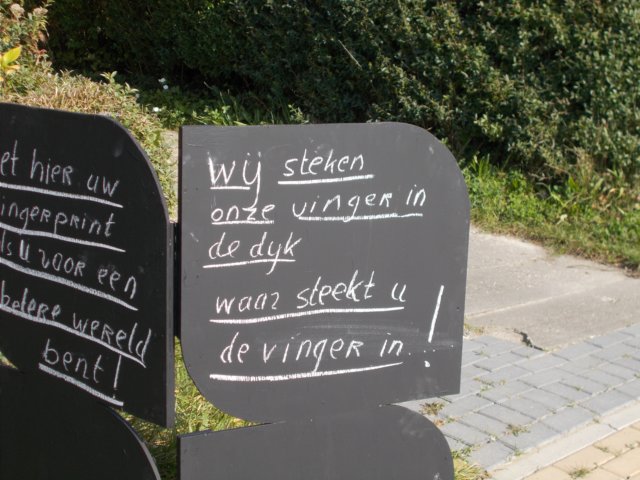 et hier uw
ingerprint
ls u voor een
betere wereld
bent!
wij steken
onze vinger in
de dyk
waar steekt u
de vinger in...!